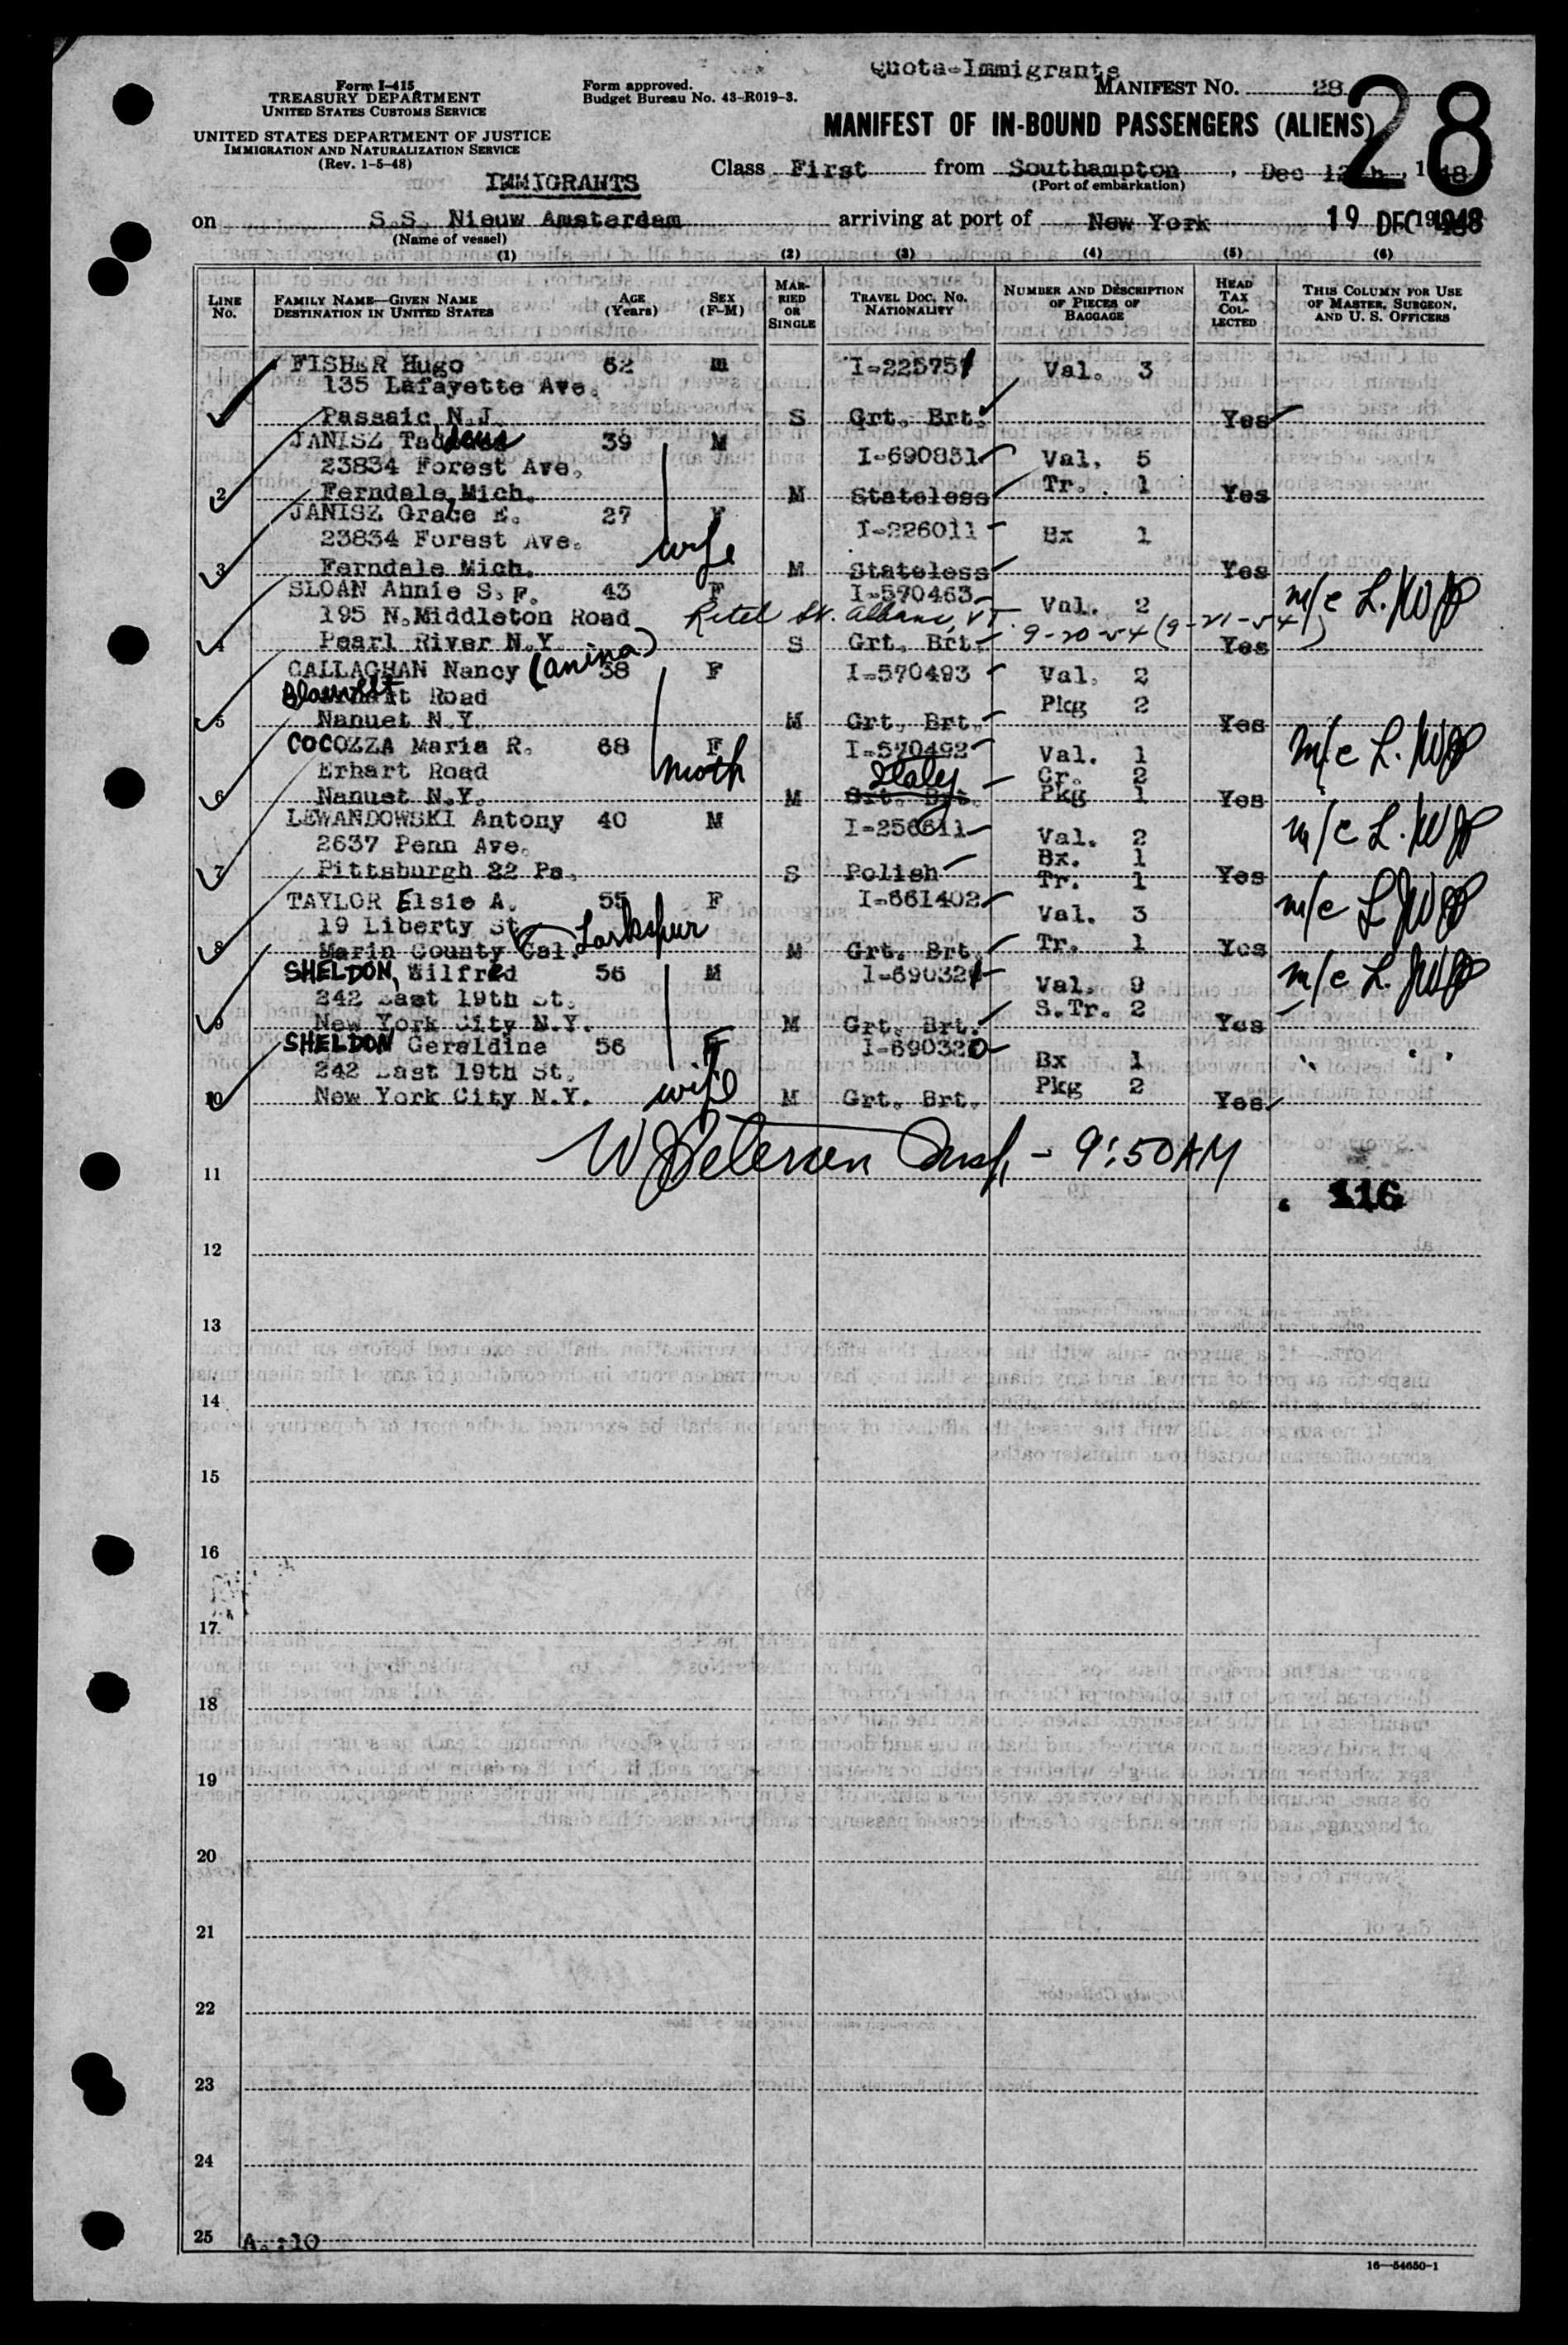 Quota-Immigrants
Form I-415
TREASURY DEPARTMENT
UNITED STATES CUSTOMS SERVICE
UNITED STATES DEPARTMENT OF JUSTICE
IMMIGRATION AND NATURALIZATION SERVICE
(Rev. 1-5-48)
Form approved.
Budget Bureau No. 43-R019-3.
MANIFEST NO. 28
28
MANIFEST OF IN-BOUND PASSENGERS (ALIENS)
IMMIGRANTS
Class First from Southampton, Dec 12th, 1948
(Port of embarkation)
on S.S. Nieuw Amsterdam arriving at port of New York 19 DEC 1948
(Name of vessel)
(1) (2) (3) (4) (5) (6)
LINE No.
FAMILY NAME—GIVEN NAME
DESTINATION IN UNITED STATES
AGE (Years)
SEX (F-M)
MARRIED OR SINGLE
TRAVEL DOC. NO.
NATIONALITY
NUMBER AND DESCRIPTION OF PIECES OF BAGGAGE
HEAD TAX COLLECTED
THIS COLUMN FOR USE OF MASTER, SURGEON, AND U. S. OFFICERS
FISHER Hugo 62 m I-225751 Val. 3
135 Lafayette Ave.
Passaic N.J. S Grt. Brt. Yes
JANISZ Taddeus 39 M I-690851 Val. 5
23834 Forest Ave.
2 Ferndale, Mich. M Stateless Tr. 1 Yes
JANISZ Grace E. 27 F I-226011 Bx 1
23834 Forest Ave. wife
3 Ferndale Mich. M Stateless Yes
SLOAN Annie S. F. 43 F I-570463 Val. 2 m/c L.
195 N.Middleton Road St. Albans, VT. 9-20-54 (9-21-54)
4 Pearl River N.Y. S Grt. Brt. Yes
CALLAGHAN Nancy (anina) 38 F I-570493 Val. 2
Blauvelt Road Pkg 2
5 Nanuet N.Y. M Grt. Brt. Yes
COCOZZA Maria R. 68 F I-570492 Val. 1 m/c L.
Erhart Road moth Italy Cr. 2
6 Nanuet N.Y. M Grt. Brt. Pkg 1 Yes
LEWANDOWSKI Antony 40 M I-256611 Val. 2 m/c L.
2637 Penn Ave. Bx. 1
7 Pittsburgh 22 Pa. S Polish Tr. 1 Yes
TAYLOR Elsie A. 55 F I-661402 Val. 3 m/c L.
19 Liberty St. Larkspur
8 Marin County Cal. M Grt. Brt. Tr. 1 Yes
SHELDON, Wilfred 56 M I-690321 Val. 9 m/c L.
242 East 19th St. S.Tr. 2
9 New York City N.Y. M Grt. Brt. Yes
SHELDON Geraldine 56 F I-690320 Bx 1
242 East 19th St. wife Pkg 2
10 New York City N.Y. M Grt. Brt. Yes
W Petersen Insp. - 9:50 AM
11
116
12
13
14
15
16
17
18
19
20
21
22
23
24
25 A.:10
16—54650-1